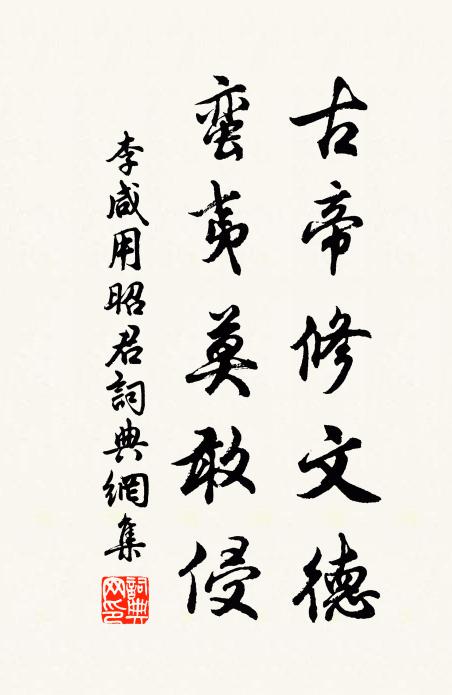 古帝修文德
蛮夷莫敢侵
李咸用昭君詞典網集
詞典网印